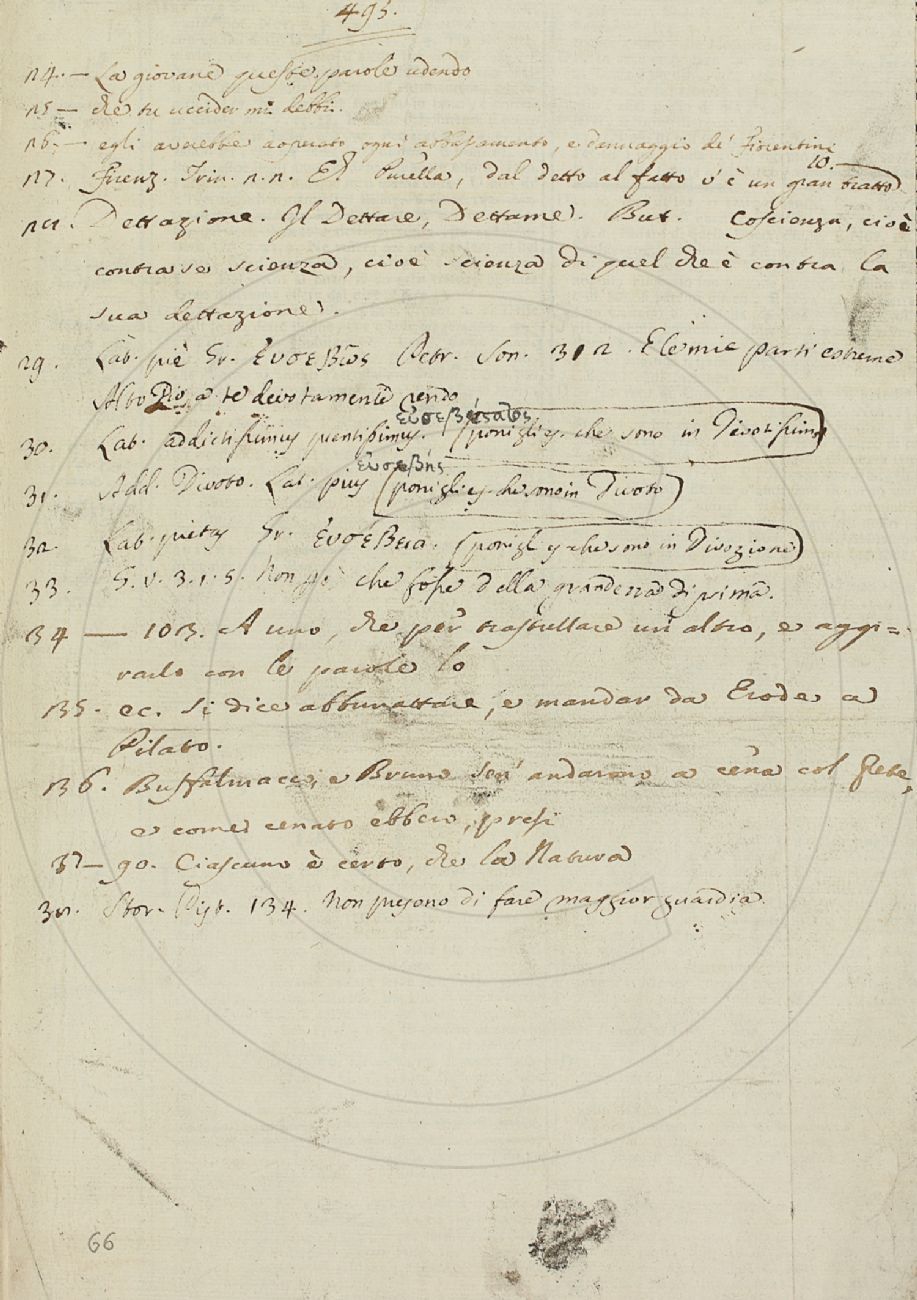 495.
124. — La giovane queste parole udendo
125 — che tu uccider mi debbi.
126. — egli averebbe aoperato ogni abbassamento, e dannaggio de' Fiorentini
127. Firenz. Trin. 2. 2. El Pulella, dal detto al fatto v' è un gran tratto
10. —
128. Dettazione. Il Dettare, Dettame. But. Coscienza, cioè
contra se scienza, cioè scienza di quel che è contra la
sua dettazione.
29. Lat. piè Gr. ἐυσεβῶς Petr. Son. 312. E le mie parti estreme
Alto Dio a te devotamente rendo
εὐσεβέστατος
30. Lat. addictissimus pientissimus. (ponigli es. che sono in Divotissimo
εὐσεβής
31. Add. Divoto. Lat. pius (ponigli es. che sono in Divoto)
32. Lat. pietas Gr. ἐυσέβεια. (ponigl es che sono in Divozione)
33. G. V. 3. 1. 5. Non già che fosse della grandezza di prima.
34 — 103. A uno, che per trastullare un' altro, e aggi=
rarlo con le parole lo
135. ec. si dice abburattare, e mandar da Erode a
Pilato.
136. Buffalmacco, e Bruno sen' andarono a cena col Prete,
e come cenato ebbero, presi
37 — 90. Ciascuno è certo, che la Natura
38. Stor. Pist. 134. Non presono di fare maggior guardia
66